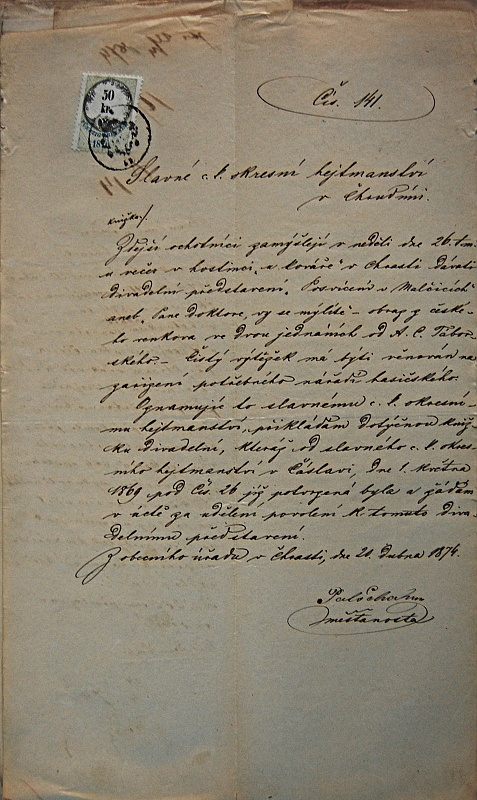 50
kr.
Čís. 141.
Slavné c. k. okresní hejtmanství
v Chrudími.
knížka/.
Zdejší ochotníci zamýšlejí v neděli dne 26. t.m.
u večer v hostinci „u kováře“ v Chrasti dávati
divadelní představení „Posvícení v Malčicích“
aneb „Pane doktore, vy se mýlíte“ – obraz z české-
ho venkova ve dvou jednáních od A. C. Tábor-
ského. – Čistý výtěžek má býti věnován na
zařízení potřebného nářadí hasičského.
Oznamujíc to slavnému c. k. okresní-
mu hejtmanství, přikládám dotyčnou kníž-
ku divadelní, kteráž od slavného c. k. okres-
ního hejtmanství v Čáslavi, dne 1. května
1869 pod čís. 26 již potvrzená byla a žádám
v úctě za udělení povolení k tomuto diva-
delnímu představení.
Z obecního úřadu v Chrasti, dne 20. dubna 1874.
měšťanosta